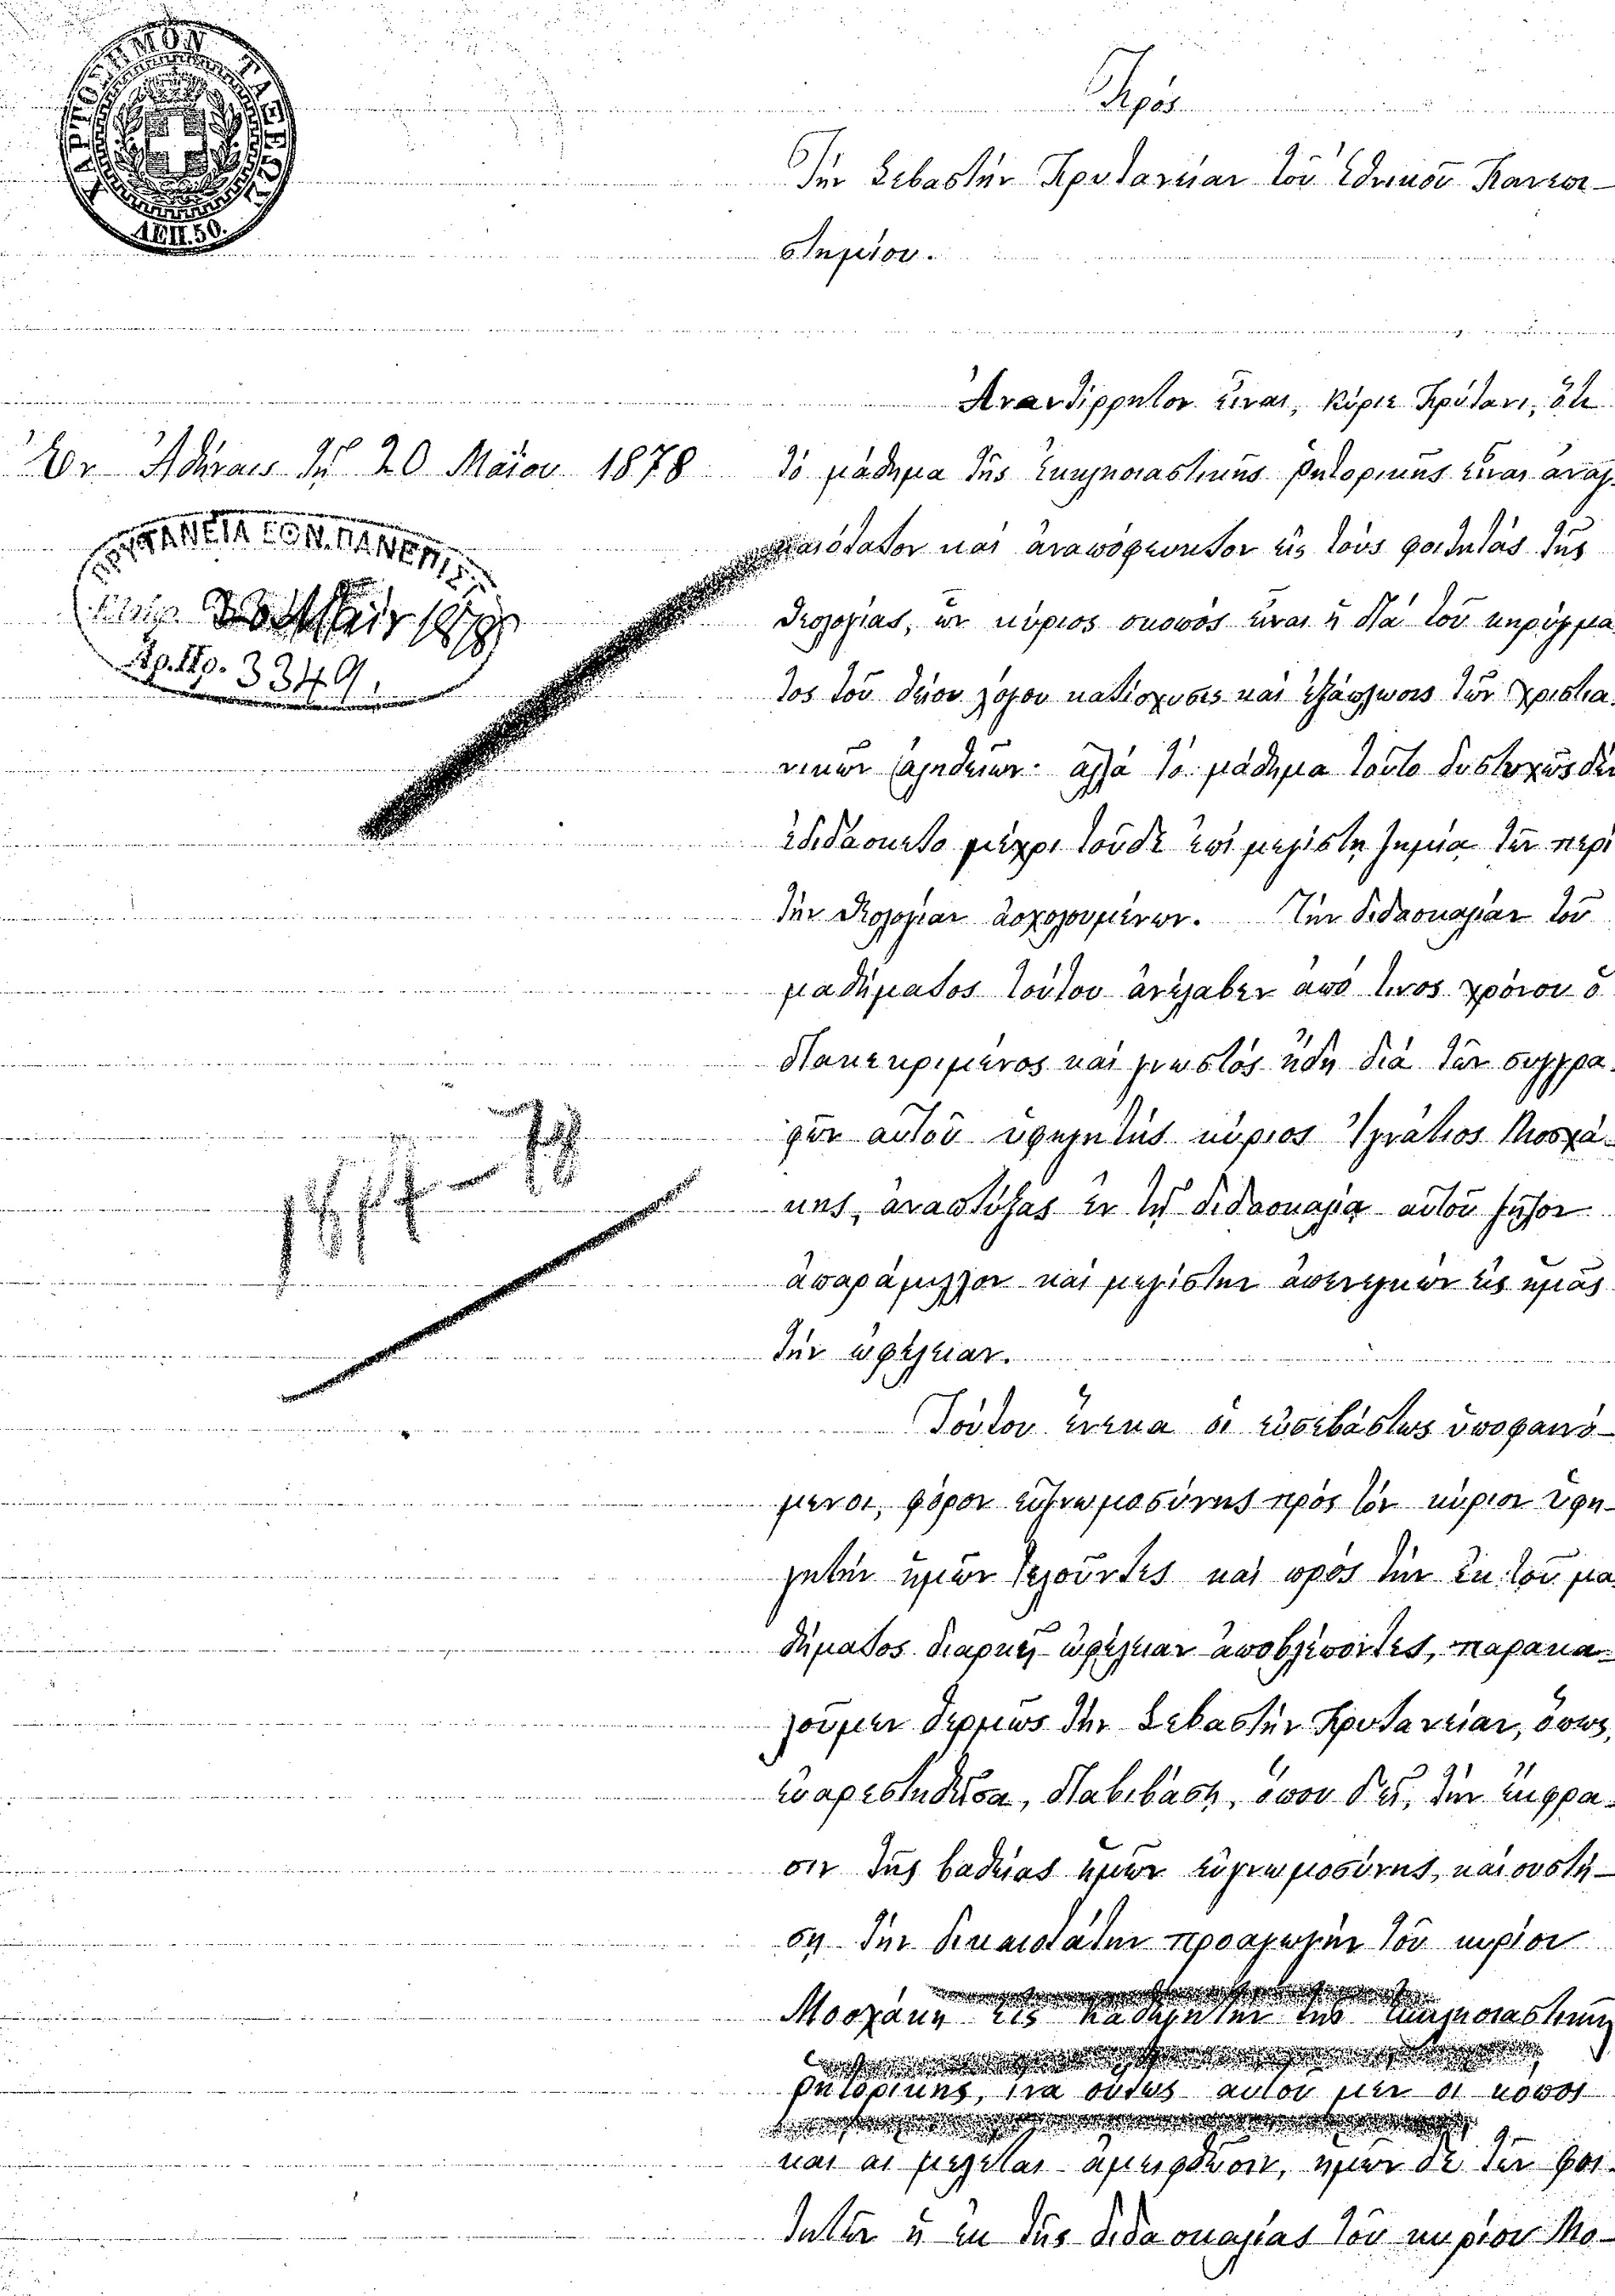 ΧΑΡΤΟΣΗΜΟΝ ΤΑΞΕΩΣ
ΛΕΠ.50.
Πρὸς
Τὴν Σεβαστὴν Πρυτανείαν τοῦ Ἐθνικοῦ Πανεπι-
στημίου.
Ἐν Ἀθήναις τῇ 20 Μαΐου 1878
ΠΡΥΤΑΝΕΙΑ ΕΘΝ. ΠΑΝΕΠΙΣΤ.
Ἀρ. Πρ. 3349.
1877-78
Ἀναντίρρητον εἶναι, κύριε Πρύτανι, ὅτι
τὸ μάθημα τῆς ἐκκλησιαστικῆς ῥητορικῆς εἶναι ἀναγ-
καιότατον καὶ ἀναπόφευκτον εἰς τοὺς φοιτητὰς τῆς
θεολογίας, ὧν κύριος σκοπὸς εἶναι ἡ διὰ τοῦ κηρύγμα-
τος τοῦ θείου λόγου κατίσχυσις καὶ ἐξάπλωσις τῶν χριστια-
νικῶν ἀληθειῶν· ἀλλὰ τὸ μάθημα τοῦτο δυστυχῶς δὲν
ἐδιδάσκετο μέχρι τοῦδε ἐπὶ μεγίστῃ ζημίᾳ τῶν περὶ
τὴν θεολογίαν ἀσχολουμένων. Τὴν διδασκαλίαν τοῦ
μαθήματος τούτου ἀνέλαβεν ἀπό τινος χρόνου ὁ
διακεκριμένος καὶ γνωστὸς ἤδη διὰ τῶν συγγρα-
φῶν αὐτοῦ ὑφηγητὴς κύριος Ἰγνάτιος Μοσχά-
κης, ἀναπτύξας ἐν τῇ διδασκαλίᾳ αὐτοῦ ζῆλον
ἀπαράμιλλον καὶ μεγίστην ἀπενεγκὼν εἰς ἡμᾶς
τὴν ὠφέλειαν.
Τούτου ἕνεκα οἱ εὐσεβάστως ὑποφαινό-
μενοι, φόρον εὐγνωμοσύνης πρὸς τὸν κύριον ὑφη-
γητὴν ἡμῶν τελοῦντες καὶ πρὸς τὴν ἐκ τοῦ μα-
θήματος διαρκῆ ὠφέλειαν ἀποβλέποντες, παρακα-
λοῦμεν θερμῶς τὴν Σεβαστὴν Πρυτανείαν, ὅπως,
εὐαρεστηθεῖσα, διαβιβάσῃ, ὅπου δεῖ, τὴν ἔκφρα-
σιν τῆς βαθείας ἡμῶν εὐγνωμοσύνης, καὶ συστή-
σῃ τὴν δικαιοτάτην προαγωγὴν τοῦ κυρίου
Μοσχάκη εἰς καθηγητὴν τῆς ἐκκλησιαστικῆς
ῥητορικῆς, ἵνα οὕτως αὐτοῦ μὲν οἱ κόποι
καὶ αἱ μελέται ἀμειφθῶσιν, ἡμῶν δὲ τῶν φοι-
τητῶν ἡ ἐκ τῆς διδασκαλίας τοῦ κυρίου Μο-